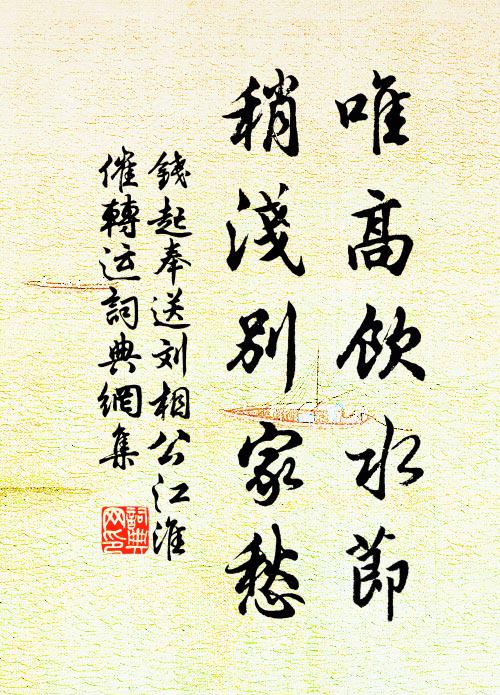 唯高飲水節
稍淺別家愁
錢起奉送刘相公江淮
催轉运詞典網集
詞典
网印